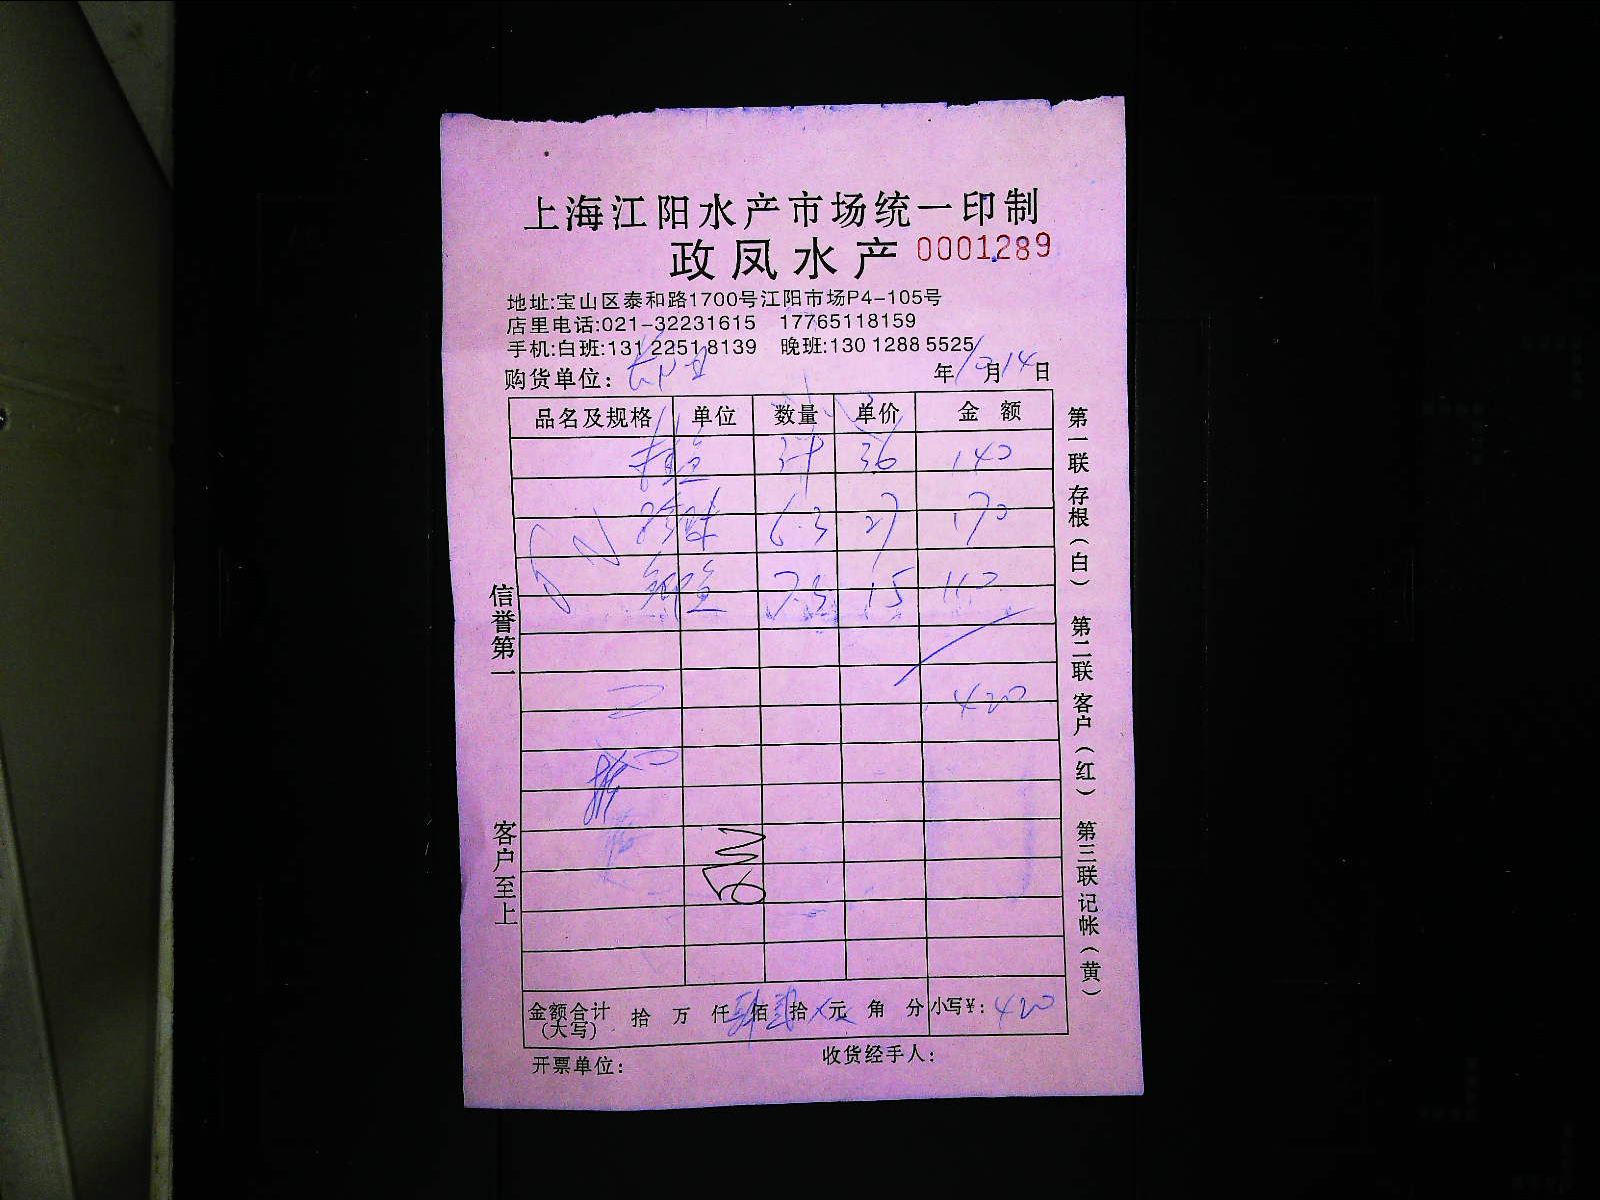 上海江阳水产市场统一印制
政凤水产 0001289
地址:宝山区泰和路1700号江阳市场P4-105号
店里电话:021-32231615 17765118159
手机:白班:131 2251 8139 晚班:130 1288 5525
购货单位: 年 12 月 14 日
品名及规格 单位 数量 单价 金 额
36 140
6.3 27 170
鱼 7.5 15 112
420
金额合计(大写) 拾 万 仟 肆 佰 贰 拾 元 角 分 小写¥: 420
开票单位: 收货经手人:
信誉第一 客户至上
第一联 存根(白) 第二联 客户(红) 第三联 记帐(黄)